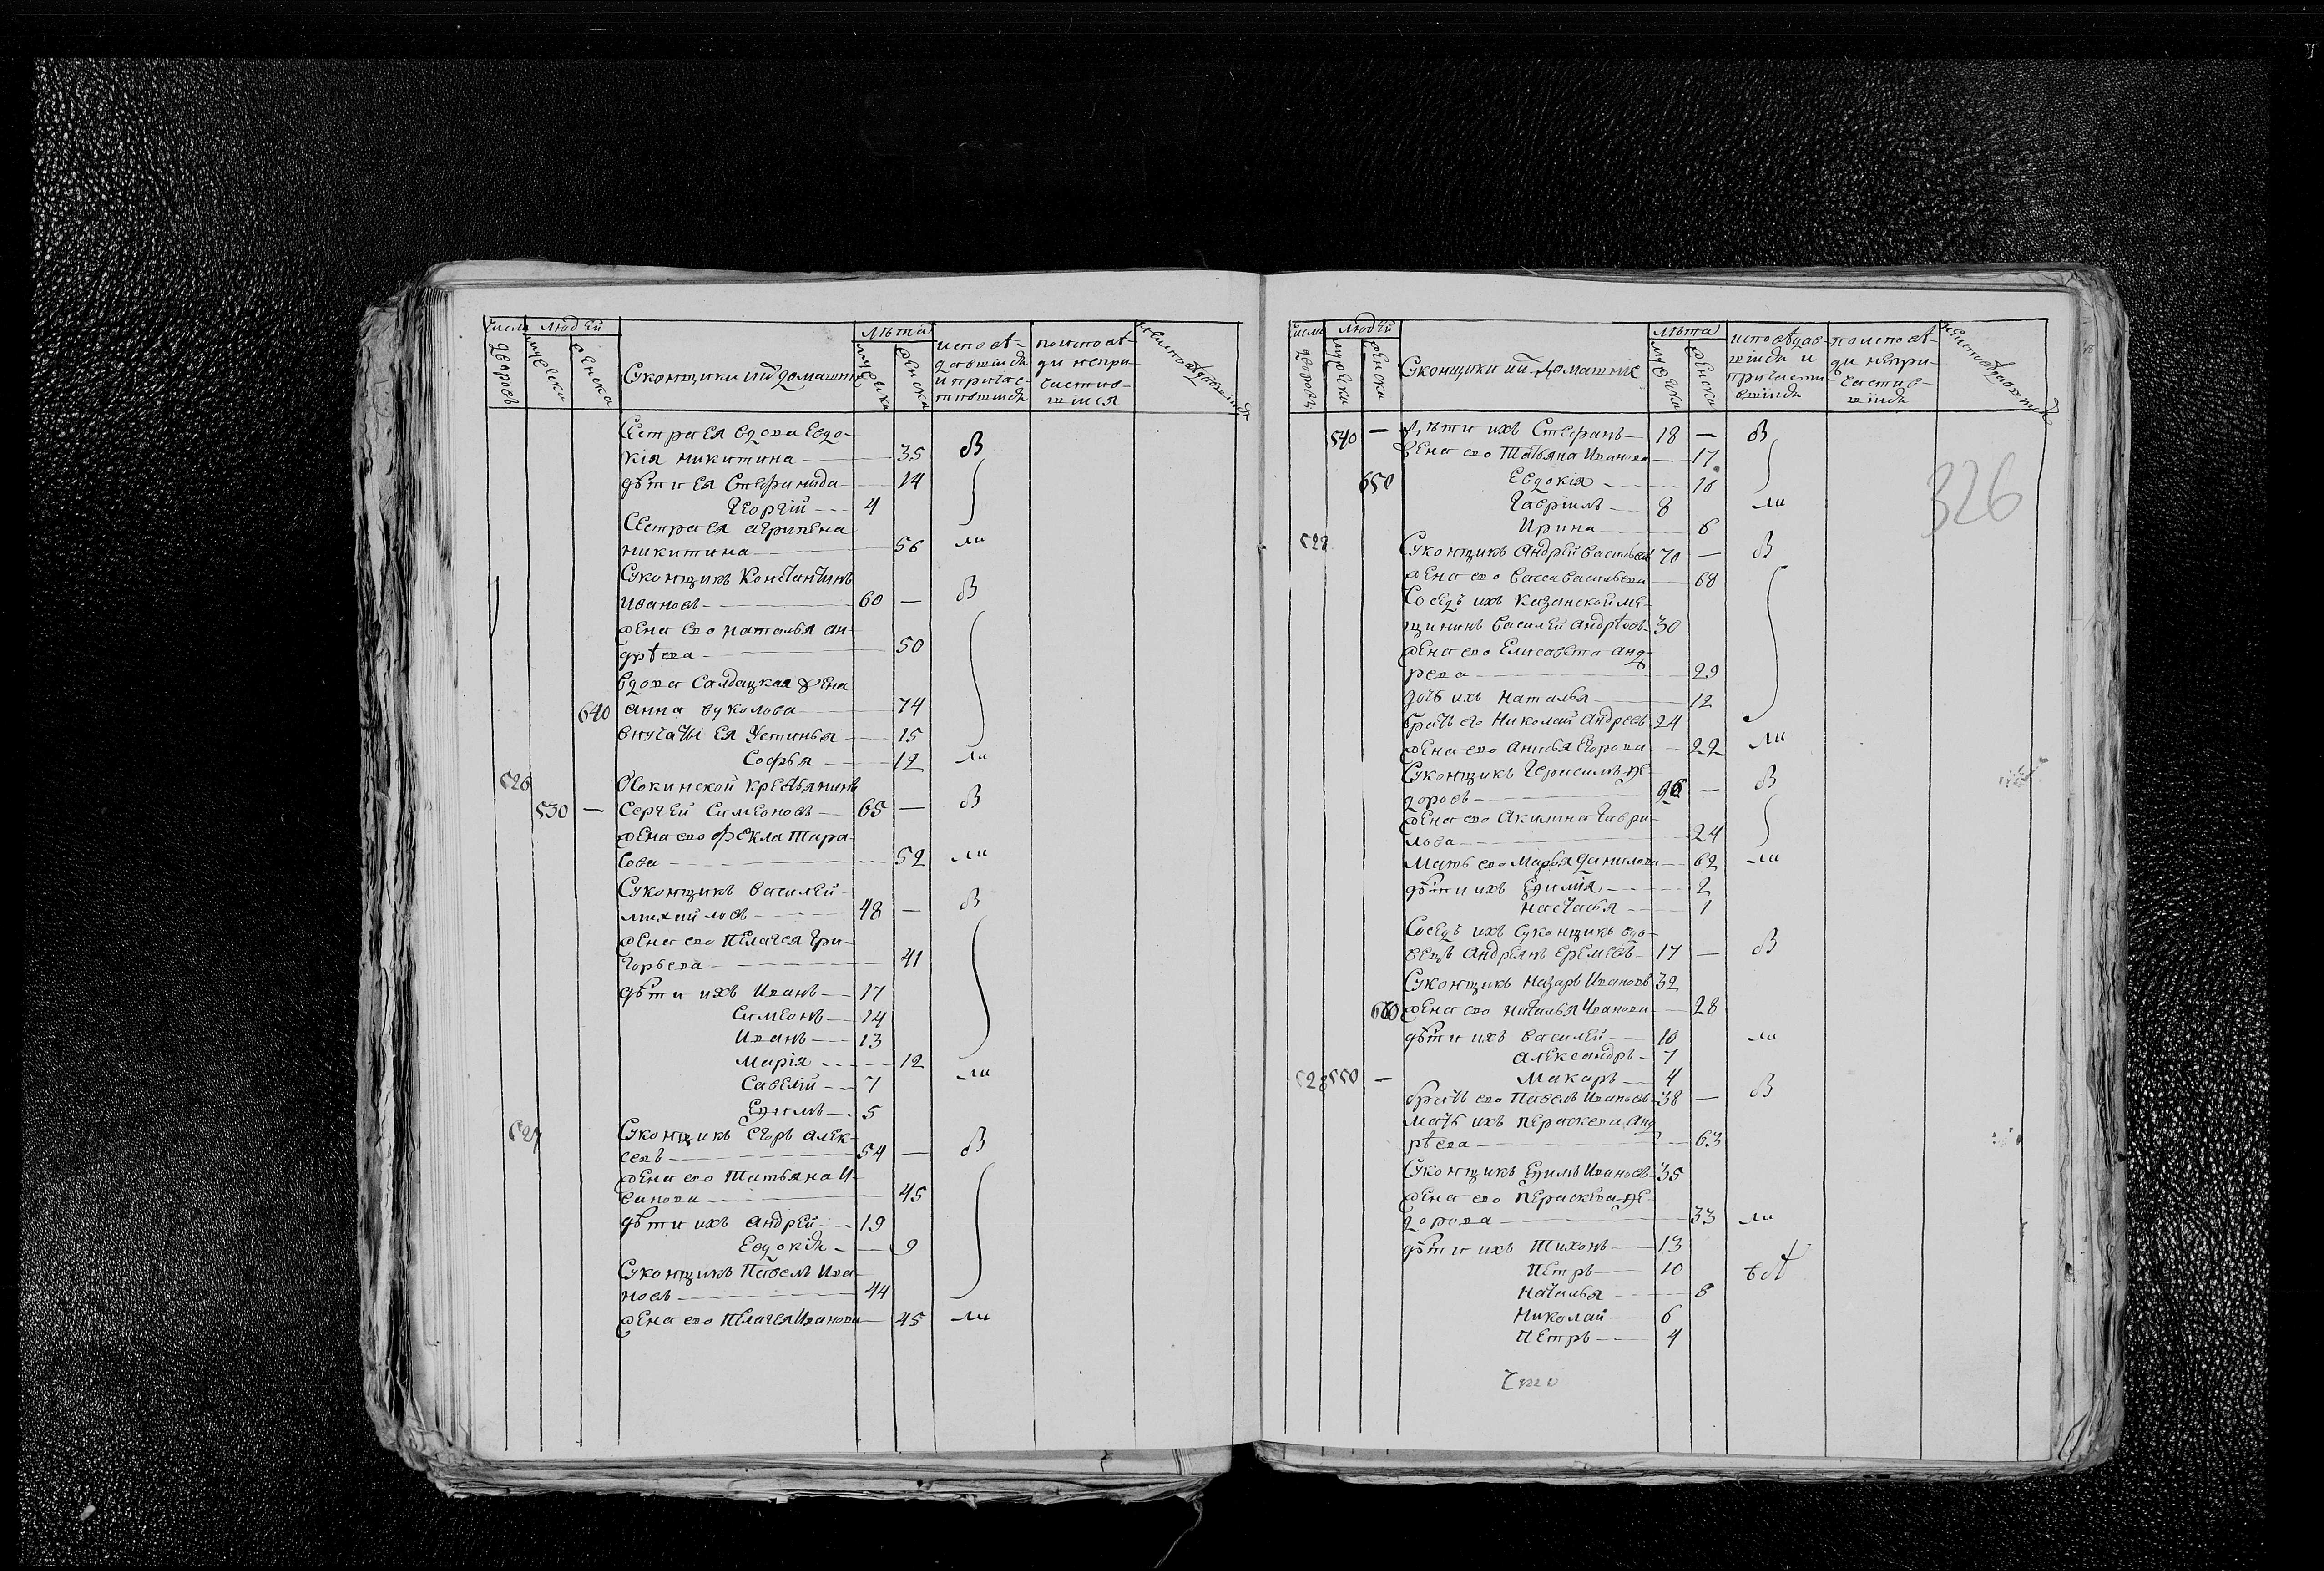 числа
людей
лѣта
дворовъ
мужеска
женска
Суконщики ий домашніе
мужеска
женска
исповѣ-
давшіяся
и причас-
тившіяся
по исповѣ-
ди непри-
частив-
шіися
неисповѣдавшіися
Сестра ея вдова Евдо-
кія Никитина 35 в
дѣти ея Степанида 14
Георгій 4
Сестра ея Агрипена
Никитина 56 ли
Суконщикъ Константинъ
Ивановъ 60 — в
жена ево Наталья Ан-
дрѣева 50
Вдова Салдацкая жена
640 Анна Вуколова 74
внучаты ея Устинья 15
Софья 12 ли
526 Осокинской крестьянинъ
530 — Сергей Симеоновъ 65 — в
жена ево Фекла Тара-
сова 52 ли
Суконщикъ Василей
Михайловъ 48 — в
жена ево Пелагея Гри-
горьева 41
дѣти ихъ Иванъ 17
Симеонъ 14
Иванъ 13
Марія 12
Савелій 7 ли
Ефимъ 5
527 Суконщикъ Егоръ Алек-
сеевъ 54 — в
жена ево Татьяна И-
ванова 45
дѣти ихъ Андрей 19
Евдокія 9
Суконщикъ Павелъ Ива-
новъ 44
жена ево Пелагея Иванова 45 ли
числа
людей
лѣта
дворовъ
мужеска
женска
Суконщики ий домашніе
мужеска
женска
исповѣдав-
шіися и
причасти-
вшіися
по исповѣ-
ди непри-
частив-
шіися
неисповѣдавшіися
326
540 — Дѣти ихъ Стефанъ 18 — в
жена ево Татьяна Иванова 17
650 Евдокія 10
Гавріилъ 8 ли
Ирина 6
Суконщикъ Андрей Васильевъ 70 — в
жена ево Васса Васильева 68
Соседъ ихъ Казанской ме-
щининъ Василей Андрѣевъ 30
жена ево Елисавета Анд-
реева 29
дочь ихъ Наталья 12
братъ его Николай Андреевъ 24
жена ево Анисья Егорова 22 ли
Суконщикъ Герасимъ Фе-
доровъ 26 — в
жена ево Акилина Гаври-
лова 24
Мать ево Марья Данилова 62 ли
дѣти ихъ Ефимія 2
Настасья 1
Соседъ ихъ Суконщикъ вдо-
вецъ Андреянъ Еремеевъ 17 — в
Суконщикъ Назаръ Ивановъ 32
660 жена ево Наталья Иванова 28
дѣти ихъ Василей 10 ли
Александръ 7
528 550 — Макаръ 4
братъ ево Павелъ Ивановъ 38 — в
Мать ихъ Пераскева Анд-
рѣева 63
Суконщикъ Ефимъ Ивановъ 35
жена ево Пераскева Фе-
дорова 33 ли
дѣти ихъ Тихонъ 13
Петръ 10
Наталья 8
Николай 6
Петръ 4